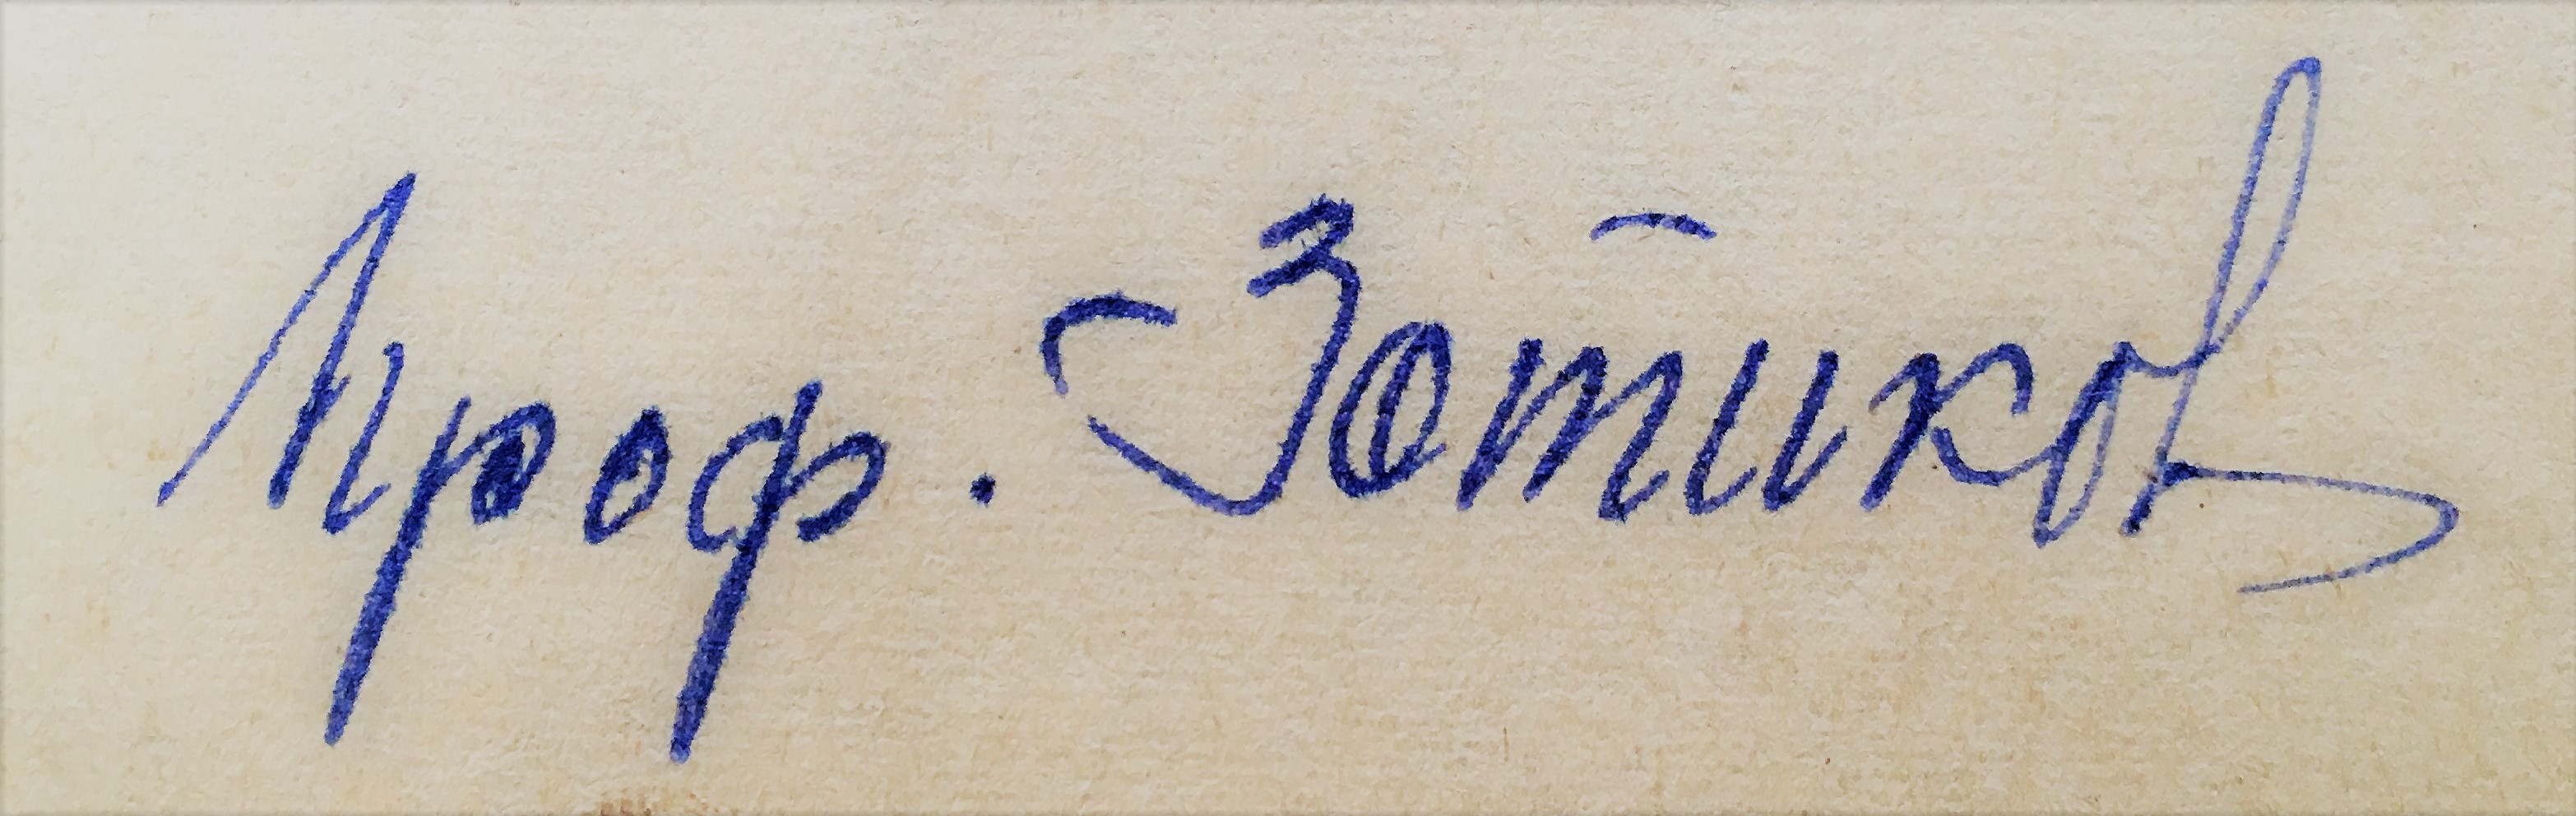 Проф. Зотиков